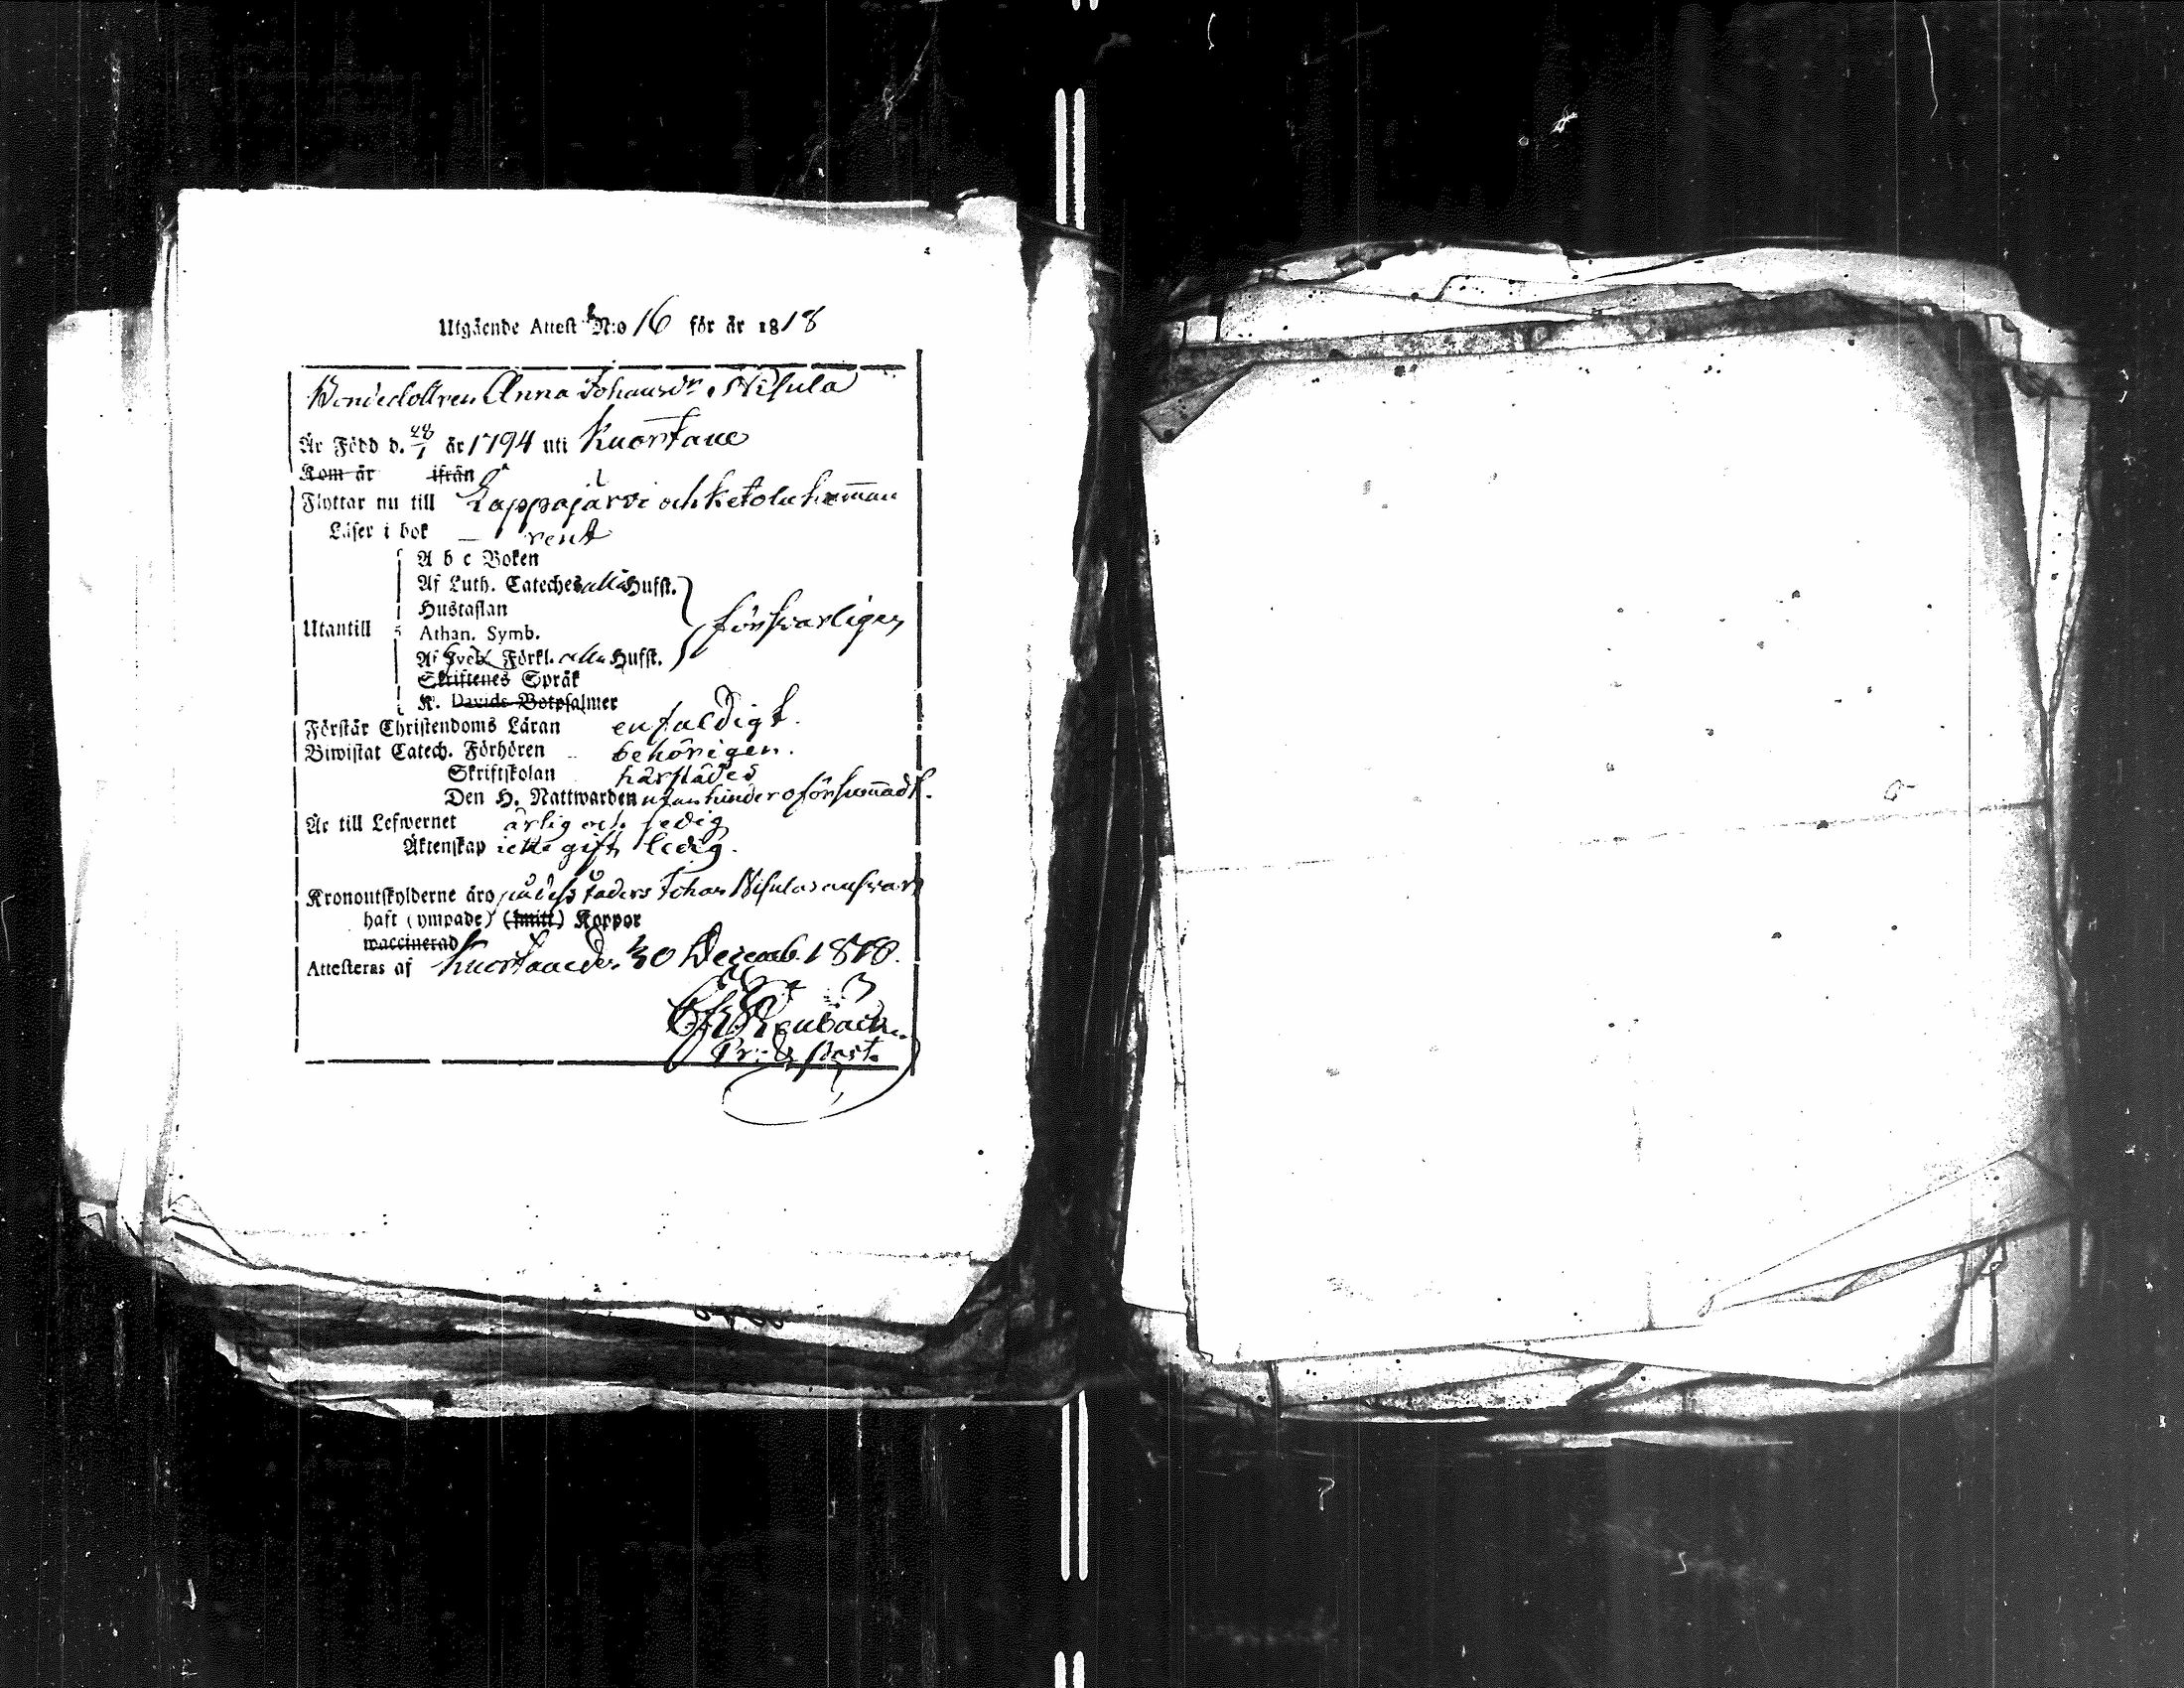 Utgående Attest N:o 16 för år 1818
Bondedottren Anna Johansdr Nisula
Är Född d. 28/1 år 1794 uti Kuortane
Kom år ifrån
Flyttar nu till Lappajärvi och Ketola hemman
Läser i bok – rent
A b c Boken
Af Luth. Cateches alla Hufst.
Hustaflan
Utantill Athan. Symb. försvarligen
Af Förkl. alla Hufst.
Skriftenes Språk
K. Davids Botpsalmer
Förstår Christendoms Läran enfaldigt.
Biwistat Catech. Förhören behörigen.
Skriftskolan härstädes
Den H. Nattwarden utan hinder oförsumadt.
Är till Lefwernet ärlig och sedig
Äktenskap icke gift, ledig.
Kronoutskylderne äro på dess faders Johan Nisulas answar
haft (ympade) (smitt) Koppor
waccinerad
Attesteras af Kuortane d. 30 Decemb. 1818.
Past.